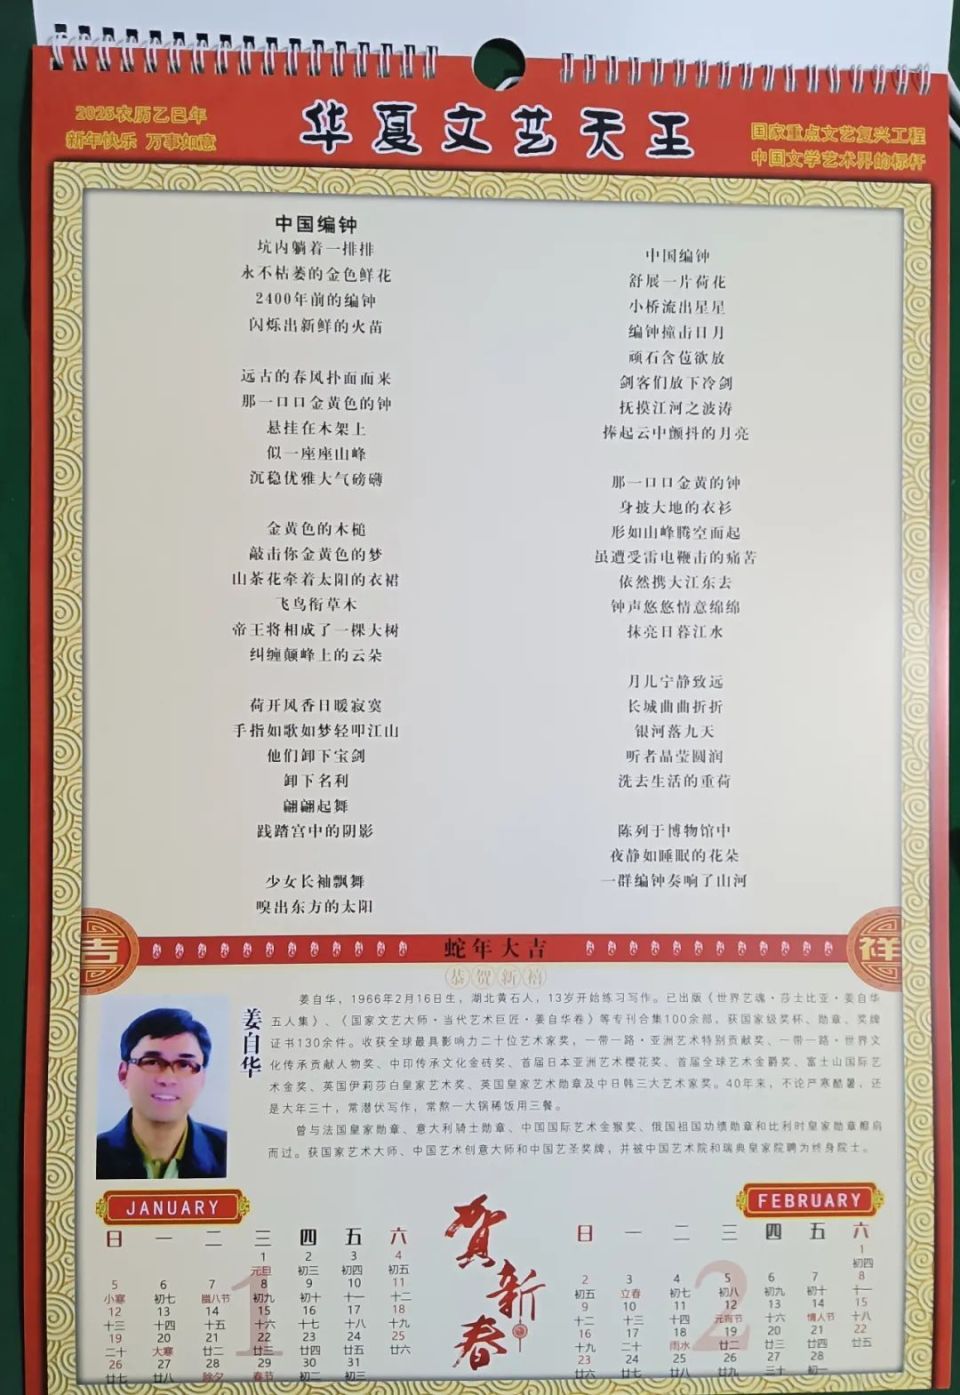 2025农历乙巳年
新年快乐 万事如意
华夏文艺天王
国家重点文艺复兴工程
中国文学艺术界的标杆
中国编钟
坑内躺着一排排
永不枯萎的金色鲜花
2400年前的编钟
闪烁出新鲜的火苗
远古的春风扑面而来
那一口口金黄色的钟
悬挂在木架上
似一座座山峰
沉稳优雅大气磅礴
金黄色的木槌
敲击你金黄色的梦
山茶花牵着太阳的衣裙
飞鸟衔草木
帝王将相成了一棵大树
纠缠颠峰上的云朵
荷开风香日暖寂寞
手指如歌如梦轻叩江山
他们卸下宝剑
卸下名利
翩翩起舞
践踏宫中的阴影
少女长袖飘舞
嗅出东方的太阳
中国编钟
舒展一片荷花
小桥流出星星
编钟撞击日月
顽石含苞欲放
剑客们放下冷剑
抚摸江河之波涛
捧起云中颤抖的月亮
那一口口金黄的钟
身披大地的衣衫
形如山峰腾空而起
虽遭受雷电鞭击的痛苦
依然携大江东去
钟声悠悠情意绵绵
抹亮日暮江水
月儿宁静致远
长城曲曲折折
银河落九天
听者晶莹圆润
洗去生活的重荷
陈列于博物馆中
夜静如睡眠的花朵
一群编钟奏响了山河
吉
蛇年大吉
祥
恭贺新禧
姜自华
姜自华，1966年2月16日生，湖北黄石人，13岁开始练习写作。已出版《世界艺魂·莎士比亚·姜自华
五人集》、《国家文艺大师·当代艺术巨匠·姜自华卷》等专刊合集100余部，获国家级奖杯、勋章、奖牌
证书130余件。收获全球最具影响力二十位艺术家奖，一带一路·亚洲艺术特别贡献奖、一带一路·世界文
化传承贡献人物奖、中印传承文化金砖奖、首届日本亚洲艺术樱花奖、首届全球艺术金爵奖、富士山国际艺
术金奖、英国伊莉莎白皇家艺术奖、英国皇家艺术勋章及中日韩三大艺术家奖。40年来，不论严寒酷暑，还
是大年三十，常潜伏写作，常熬一大锅稀饭用三餐。
曾与法国皇家勋章、意大利骑士勋章、中国国际艺术金猴奖、俄国祖国功绩勋章和比利时皇家勋章擦肩
而过。获国家艺术大师、中国艺术创意大师和中国艺圣奖牌，并被中国艺术院和瑞典皇家院聘为终身院士。
JANUARY
日 一 二 三 四 五 六
1 2 3 4
元旦 初三 初四 初五
5 6 7 8 9 10 11
小寒 初七 腊八节 初九 初十 十一 十二
12 13 14 15 16 17 18
十三 十四 十五 十六 十七 十八 十九
19 20 21 22 23 24 25
二十 大寒 廿二 廿三 廿四 廿五 廿六
26 27 28 29 30 31
廿七 廿八 除夕 春节 初二 初三
1
贺新春
FEBRUARY
日 一 二 三 四 五 六
1
初四
2 3 4 5 6 7 8
初五 立春 初七 初八 初九 初十 十一
9 10 11 12 13 14 15
十二 十三 十四 元宵节 十六 情人节 十八
16 17 18 19 20 21 22
十九 二十 雨水 廿二 廿三 廿四 廿五
23 24 25 26 27 28
廿六 廿七 廿八 廿九 三十 初一
2